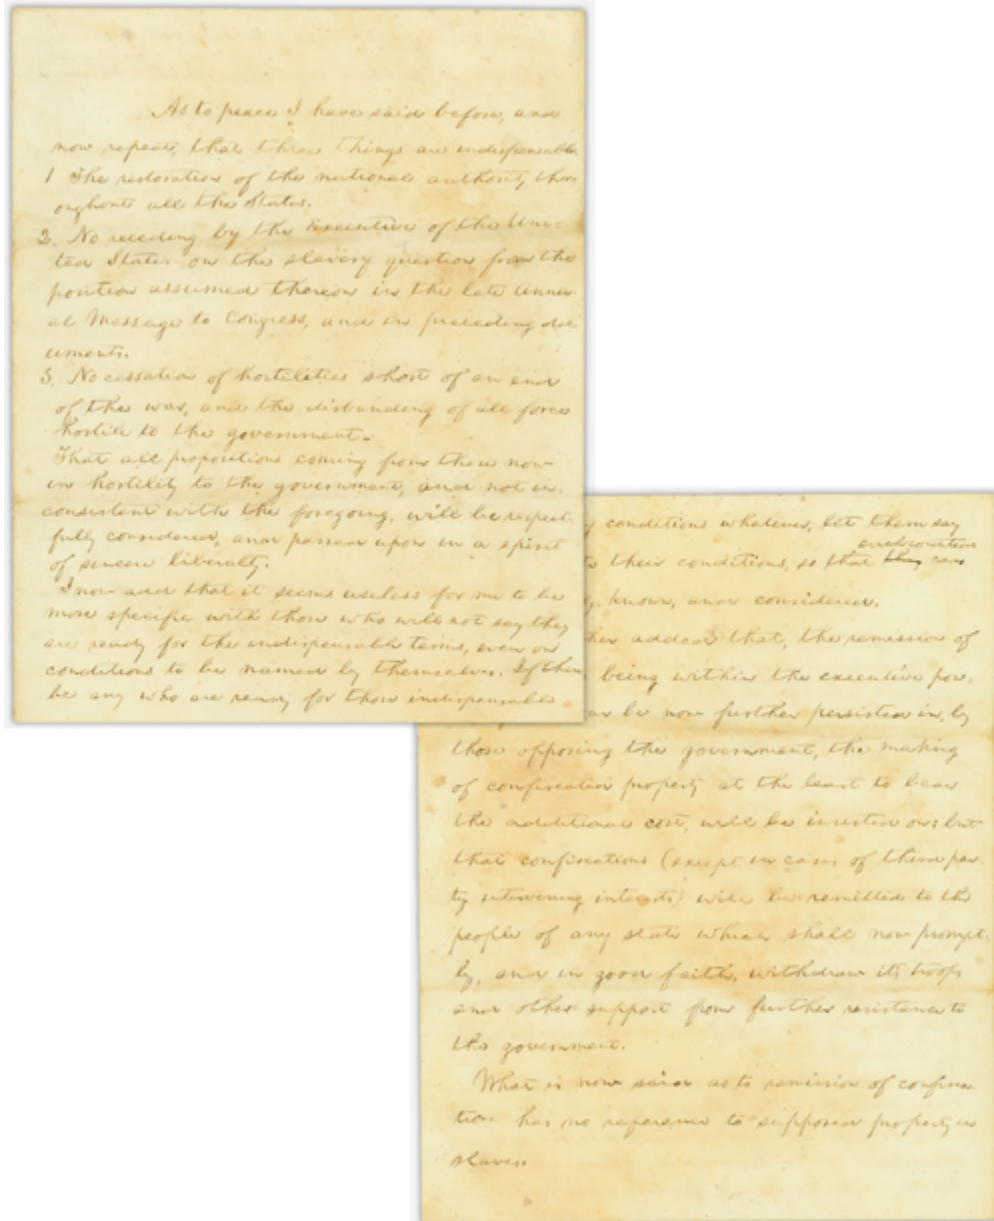 As to peace I have said before, and
now repeat, that three things are indispensable.
1 The restoration of the national authority thro
oughout all the States.
2. No receding by the Executive of the Uni-
ted States on the slavery question from the
position assumed thereon in the late Annu-
al Message to Congress, and in preceding doc
uments.
3. No cessation of hostilities short of an end
of the war, and the disbanding of all force
hostile to the government.
That all propositions coming from those now
in hostility to the government, and not in-
consistent with the foregoing, will be respect-
fully considered, and passed upon in a spirit
of sincere liberality.
I now add that it seems useless for me to be
more specific with those who will not say they
are ready for the indispensable terms, even on
conditions to be named by themselves. If there
be any who are ready for those indispensable
conditions whatever, let them say
such conditions
their conditions, so that they can
known, and considered.
added that, the remission of
being within the executive pow-
be now further persisted in, by
those opposing the government, the making
of confiscated property at the least to bear
the additional cost, will be insisted on; but
that confiscations (except in cases of third par-
ty intervening interests) will be remitted to the
people of any state which shall now prompt-
ly, and in good faith, withdraw its troops
and other support from further resistance to
the government.
What is now said as to remission of confisca-
tion has no reference to supposed property in
slaves.